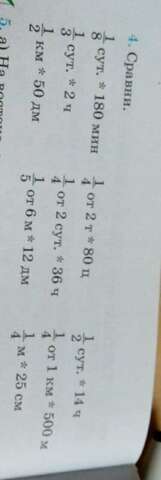 4. Сравни.
1/8 сут. * 180 мин 1/4 от 2 т * 80 ц 1/2 сут. * 14 ч
1/3 сут. * 2 ч 1/4 от 2 сут. * 36 ч 1/4 от 1 км * 500 м
1/2 км * 50 дм 1/5 от 6 м * 12 дм 1/4 м * 25 см
5. а) На